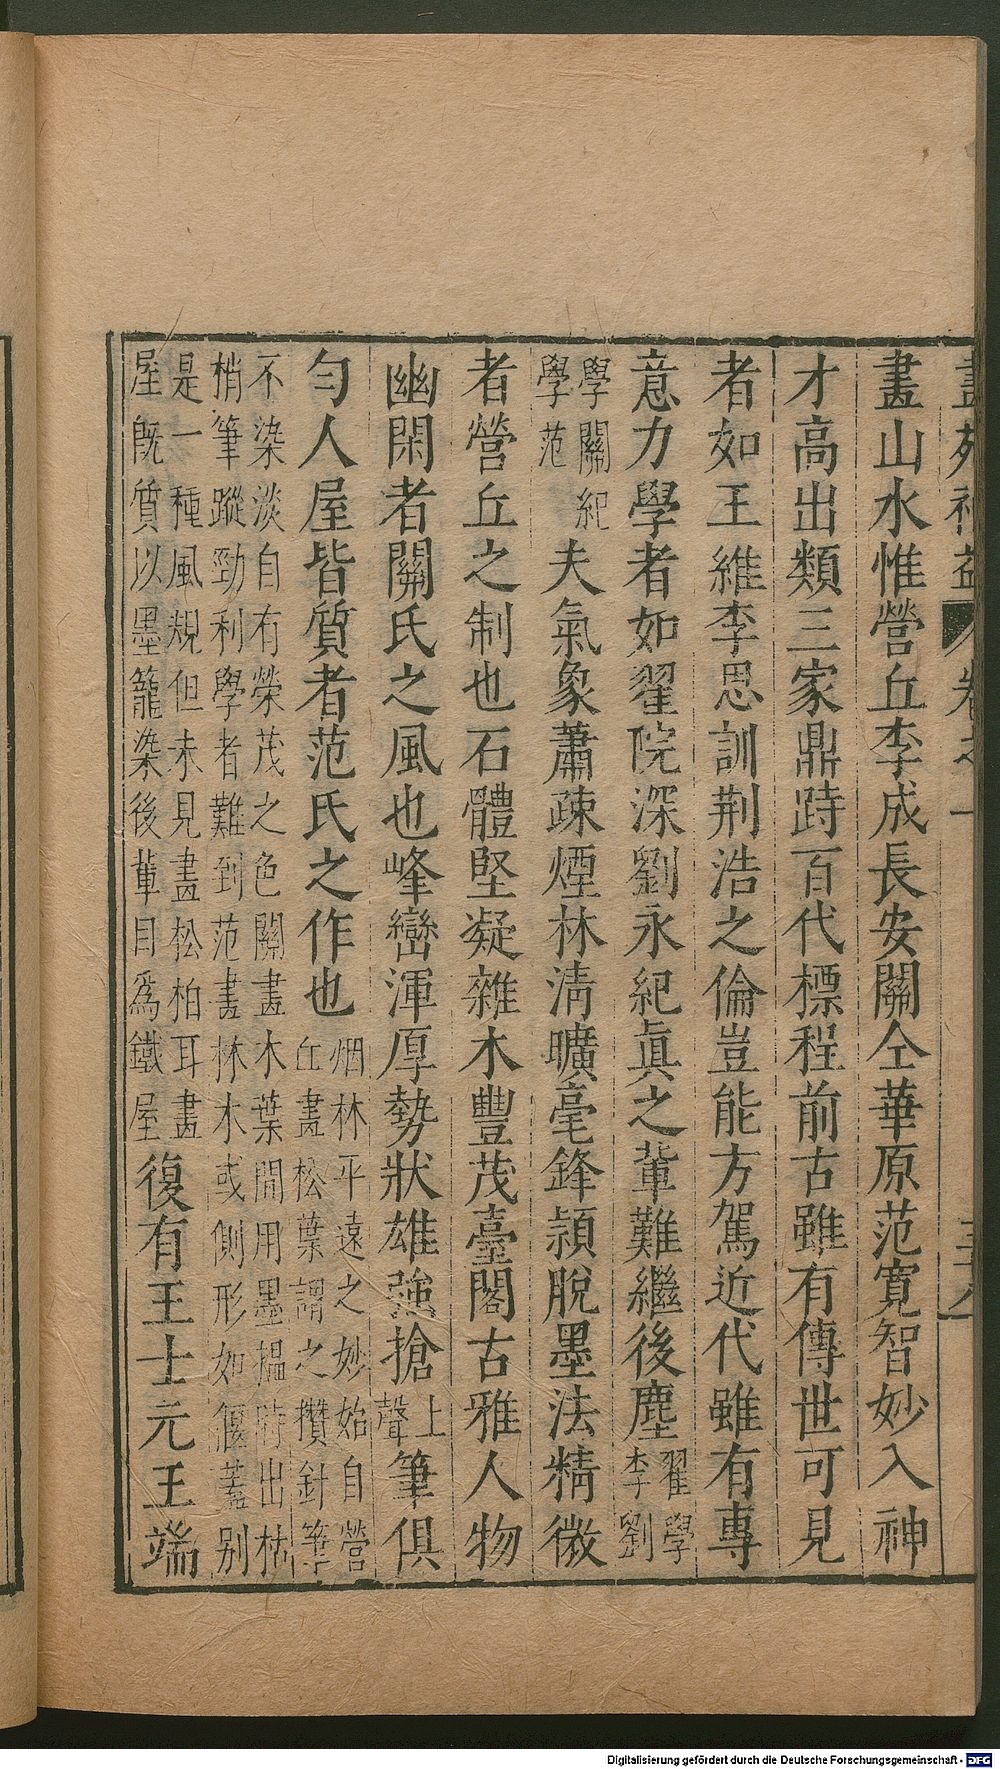 畫苑補益 卷之一 三十八
畫山水惟營丘李成長安關仝華原范寬智妙入神
才高出類三家鼎跱百代標程前古雖有傳世可見
者如王維李思訓荆浩之倫豈能方駕近代雖有專
意力學者如翟院深劉永紀眞之輩難繼後塵翟學李劉
學關紀學范夫氣象蕭疎煙林淸曠毫鋒頴脫墨法精微
者營丘之制也石體堅凝雜木豐茂臺閣古雅人物
幽閑者關氏之風也峰巒渾厚勢狀雄強搶上聲筆俱
匀人屋皆質者范氏之作也烟林平遠之妙始自營丘畫松葉謂之攢針筆
不染淡自有榮茂之色關畫木葉間用墨揾時出枯梢筆蹤勁利學者難到范畫林木或側形如偃蓋别
是一種風規但未見畫松柏耳畫屋旣質以墨籠染後輩目爲鐵屋復有王士元王端
Digitalisierung gefördert durch die Deutsche Forschungsgemeinschaft - DFG